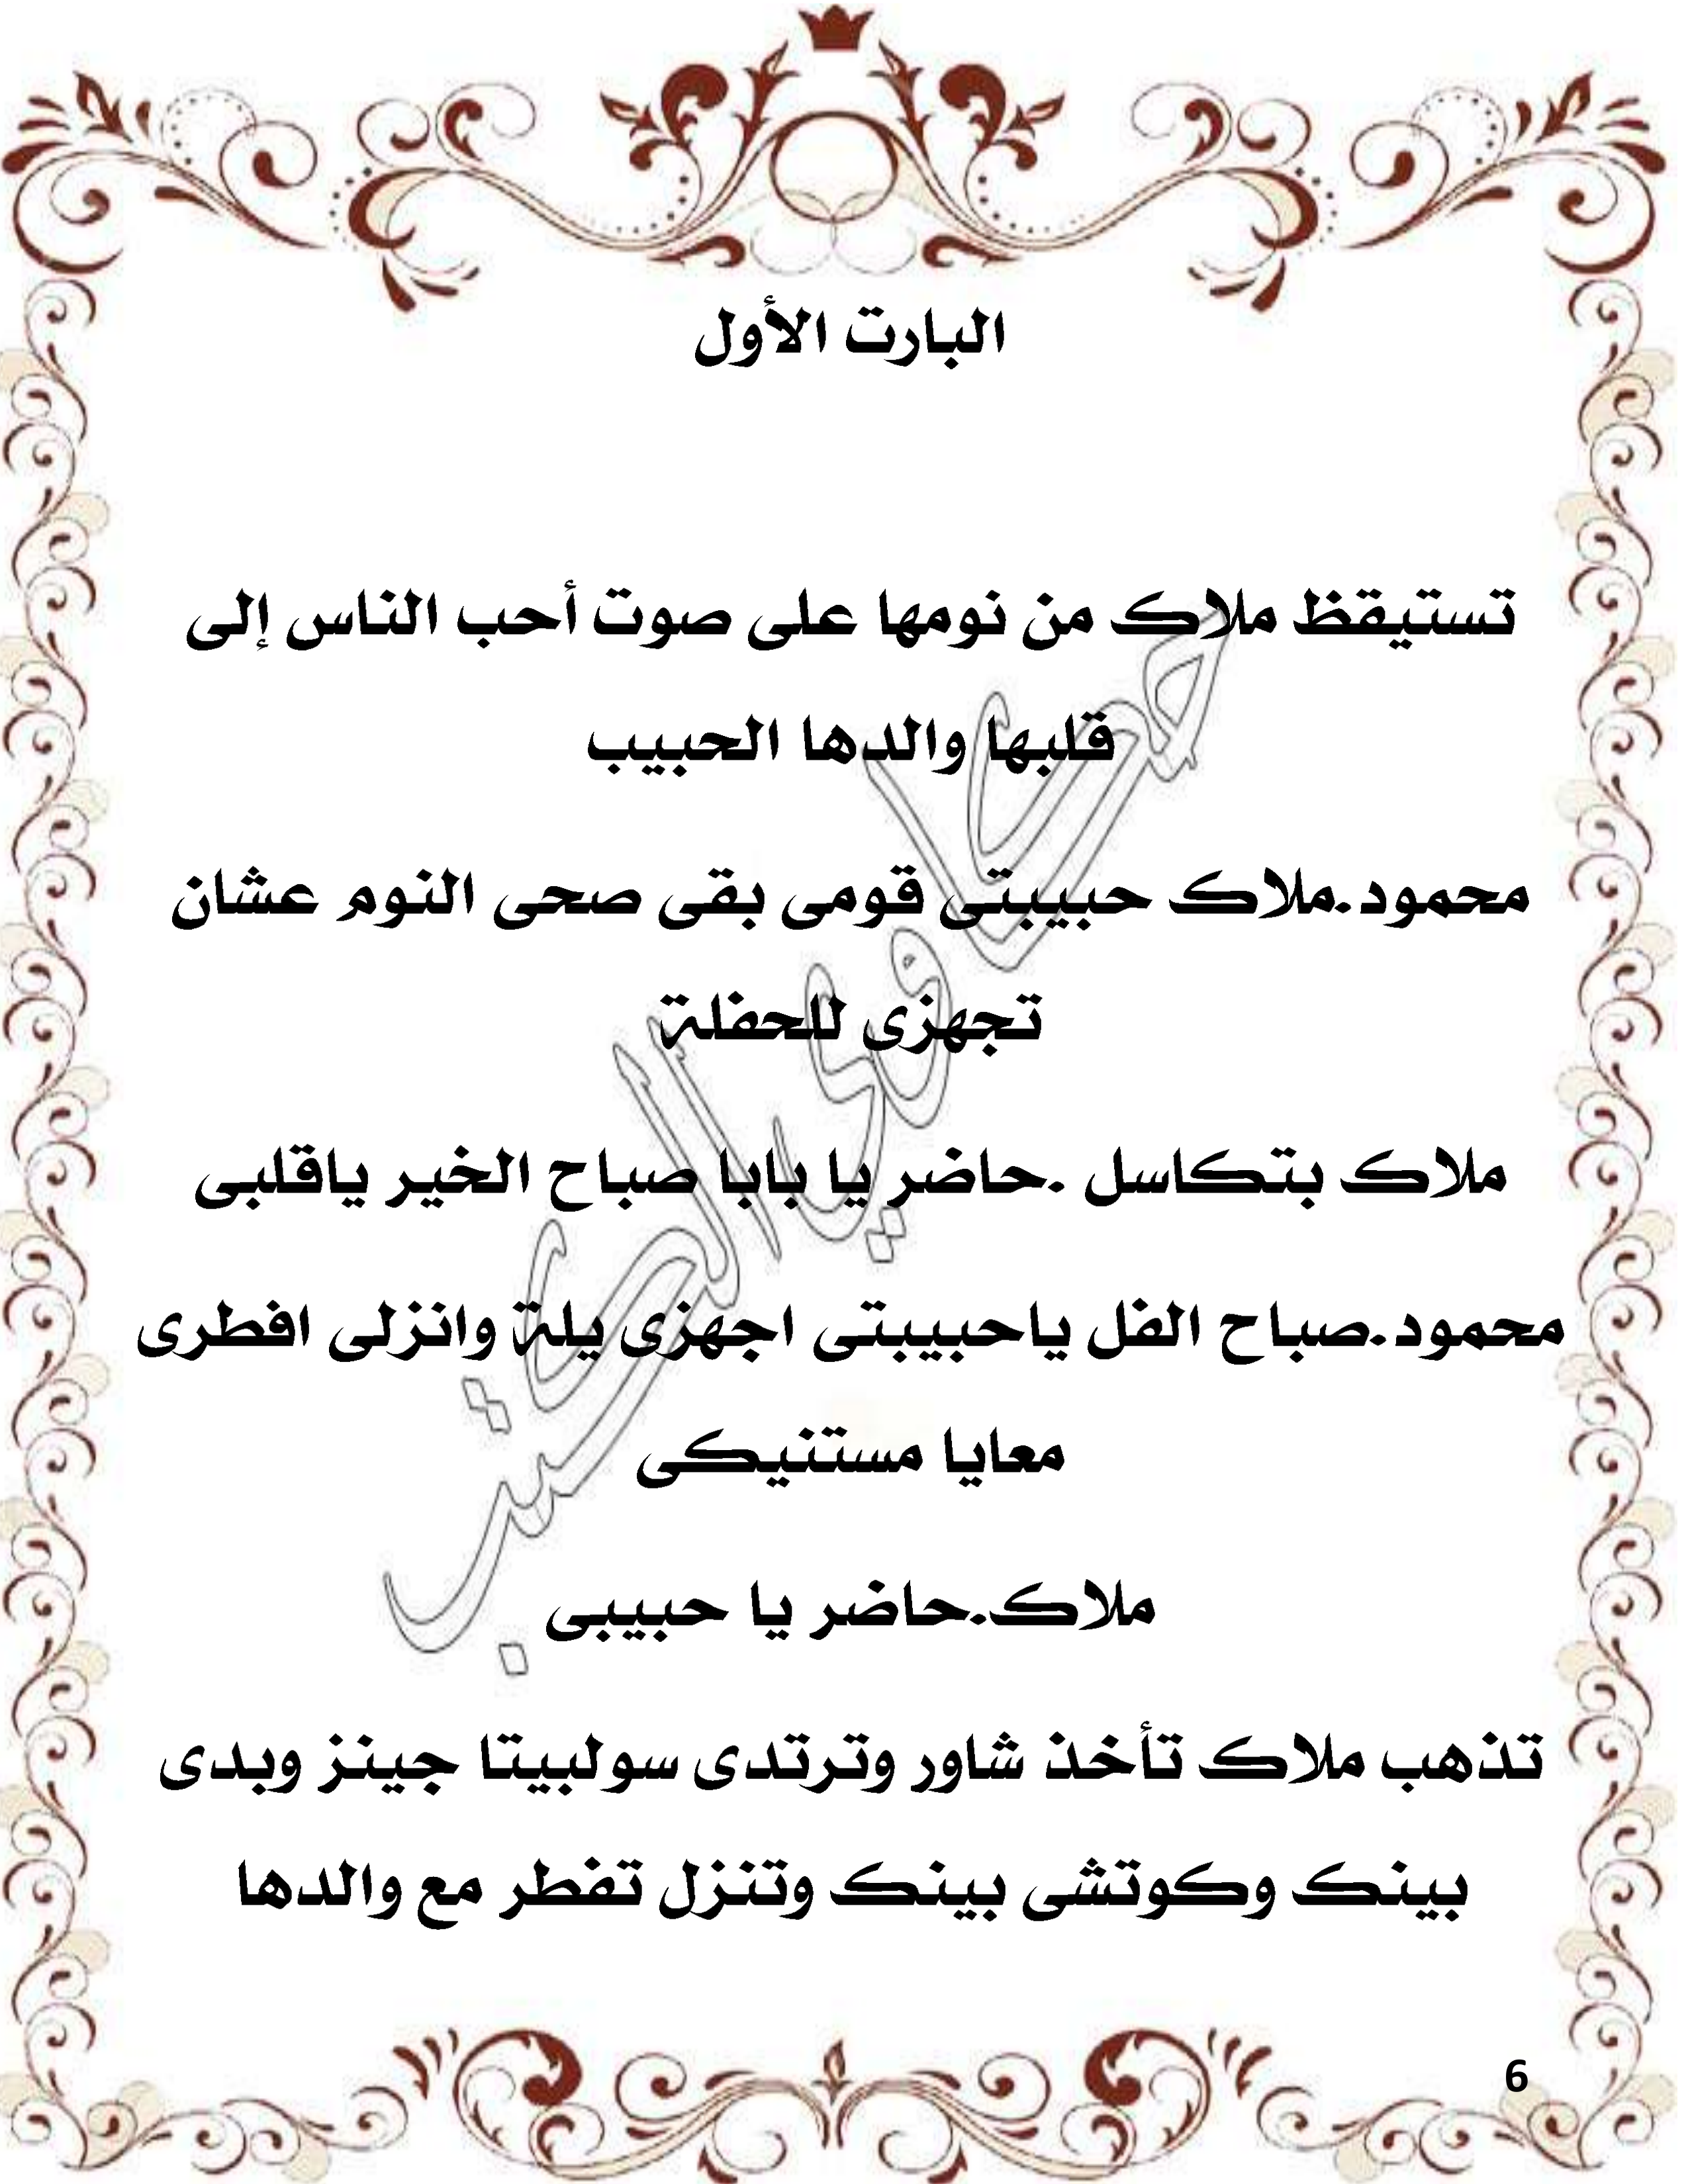 البارت الأول
تستيقظ ملاك من نومها على صوت أحب الناس إلى
قلبها والدها الحبيب
محمود.ملاك حبيبتى قومى بقى صحى النوم عشان
تجهزى للحفلة
ملاك بتكاسل .حاضر يا بابا صباح الخير ياقلبى
محمود.صباح الفل ياحبيبتى اجهزى يلة وانزلى افطرى
معايا مستنيكى
ملاك.حاضر يا حبيبى
تذهب ملاك تأخذ شاور وترتدى سولبيتا جينز وبدى
بينك وكوتشى بينك وتنزل تفطر مع والدها
حكاوى الكتب
6